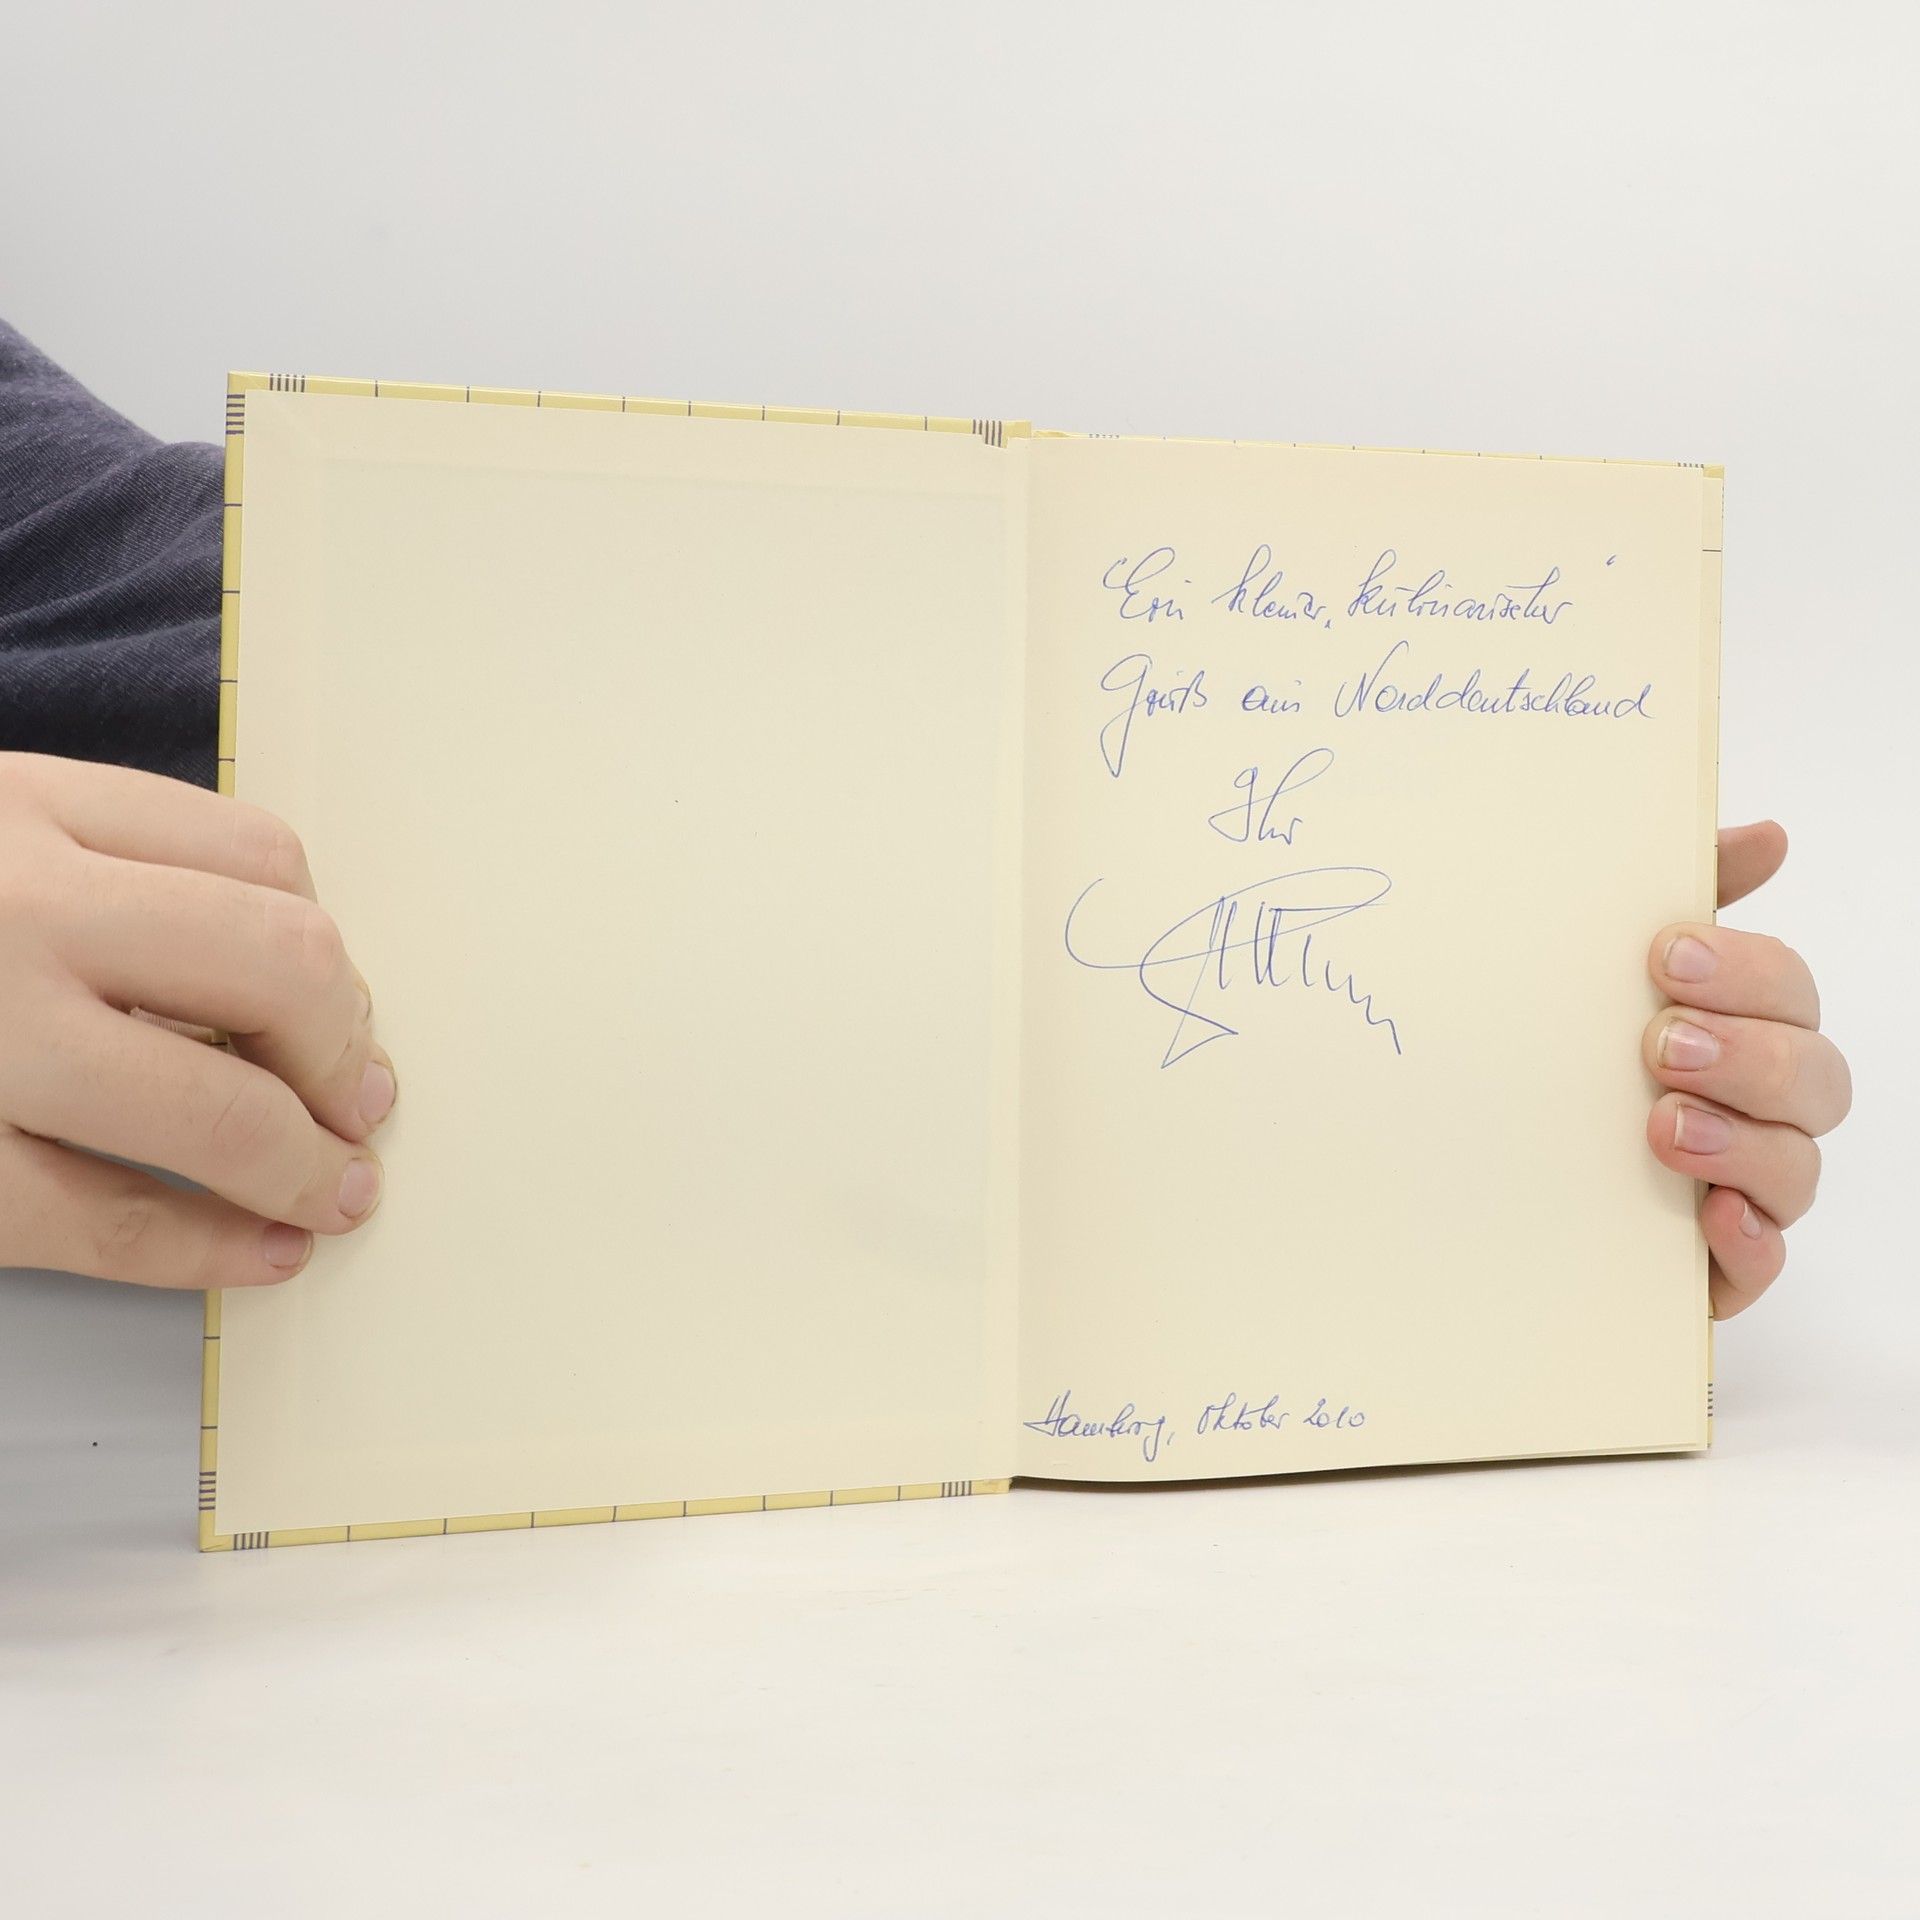 "Ein kleiner, kulinarischer"
Gruß aus Norddeutschland
Ihr
Hamburg, Oktober 2010